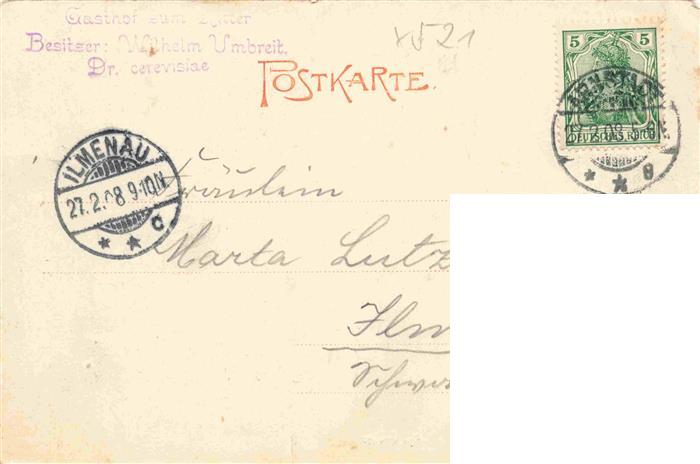 Gasthof zum Ritter
Besitzer: Wilhelm Umbreit.
Dr. cerevisiae
x521
POSTKARTE.
5 5
DEUTSCHES REICH
ARNSTADT
27.2.08
* * 8
ILMENAU
27.2.08 9-10N
* * c
Fräulein
Marta Lutz
Ilm